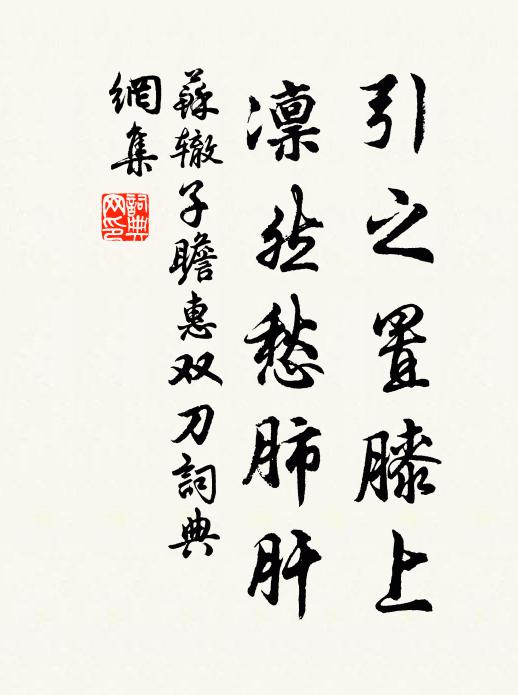 引之置膝上
凛然愁肺肝
蘇辙子瞻惠双刀詞典
網集
詞典
网印